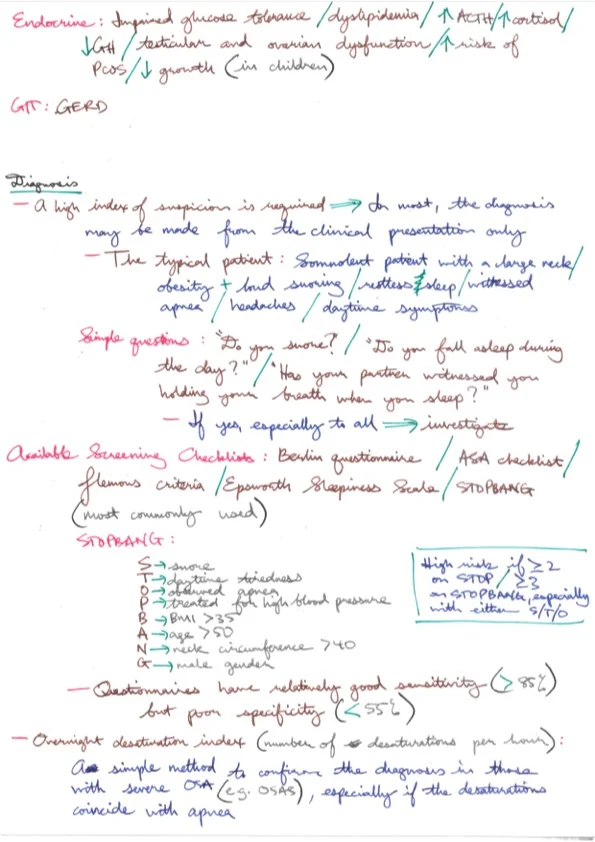 Endocrine: Impaired glucose tolerance / dyslipidemia / ↑ ACTH / ↑ cortisol /
↓ GH / testicular and ovarian dysfunction / ↑ risk of
PCOS / ↓ growth (in children)
GIT: GERD
Diagnosis
– A high index of suspicion is required ⟹ In most, the diagnosis
may be made from the clinical presentation only
– The typical patient: Somnolent patient with a large neck /
obesity + loud snoring / restless sleep / witnessed
apnea / headaches / daytime symptoms
Simple questions: "Do you snore?" / "Do you fall asleep during
the day?" / "Has your partner witnessed you
holding your breath when you sleep?"
– If yes, especially to all ⟹ investigate
Available Screening Checklists: Berlin questionnaire / ASA checklist /
Flemons criteria / Epsworth Sleepiness Scale / STOPBANG
(most commonly used)
STOPBANG:
S → snore
T → daytime tiredness
O → observed apnea
P → treated for high blood pressure
B → BMI >35
A → age >50
N → neck circumference >40
G → male gender
High risk if ≥2
on STOP / ≥3
on STOPBANG, especially
with either S/T/O
– Questionnaires have relatively good sensitivity (≥ 85%)
but poor specificity (< 55%)
– Overnight desaturation index (number of desaturations per hour):
A simple method to confirm the diagnosis in those
with severe OSA (e.g. OSAS), especially if the desaturations
coincide with apnea